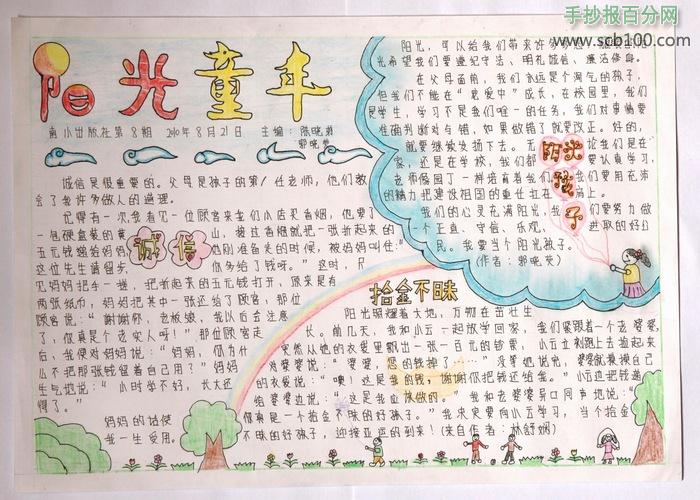 手抄报百分网
www.scb100.com
阳光童年
南小出版社第8期 2010年8月21日 主编:陈晓弟
郭晓荧
诚信是很重要的。父母是孩子的第1任老师,他们教
会了我许多做人的道理。
记得有一次,我看见一位顾客来拿小店买香烟,他要了
一包硬盒装的黄山,接过香烟就把一张折起来的
五元钱递给妈妈,他刚准备走的时候,被妈妈叫住:“
这位先生请留步,你多给了钱呀。”这时,只
见妈妈把手一搓,把折起来的五元钱打开,原来是有
两张纸币,妈妈把其中一张还给了顾客,那位
顾客说:“谢谢你,老板娘,我以后会注意
了,你真是个老实人呀!”那位顾客走
后,我便对妈妈说:“妈妈,你为什
么不把那张钱留着自己用?”妈妈
生气地说:“小时学不好,长大还
得了。”
妈妈的话使
我一生受用。
诚信
阳光,可以给我们带来许多
光希望我们要遵纪守法、明礼诚信、廉洁修身。
在父母面前,我们永远是个淘气的孩子,
但我们不能在“宠爱中”成长,在校园里,我们
是学生,学习不是我们唯一的任务,我们对事情要
准确判断对与错,如果做错了就要改正。好的,
就要继续发扬下去。无论我们是在
家,还是在学校,我们都要认真学习,
老师像园丁一样培育着我们,我们要用充沛
的精力把建设祖国的重任扛在肩上。
我们的心灵充满阳光,我们要努力做
一个正直、守信、乐观、进取的好公
民。我要当个阳光孩子。
(作者:郭晓荧)
阳光孩子
拾金不昧
阳光照耀着大地,万物在茁壮生
长。前几天,我和小云一起放学回家,我们紧跟着一个老婆婆,
突然从她的衣袋里飘出一张一百元的钞票,小云立刻跑上去捡起来
对婆婆说:“婆婆,您的钱掉了……”没等她说完,婆婆就摸摸自己
的衣袋说:“噢!这是我的钱,谢谢你把钱还给我。”小云边把钱递
给婆婆边说:“这是我应该做的。”我和老婆婆异口同声地说:“
你真是一个拾金不昧的好孩子。”我决定要向小云学习,当个拾金
不昧的好孩子,迎接亚运的到来!(来自作者:林舒娴)